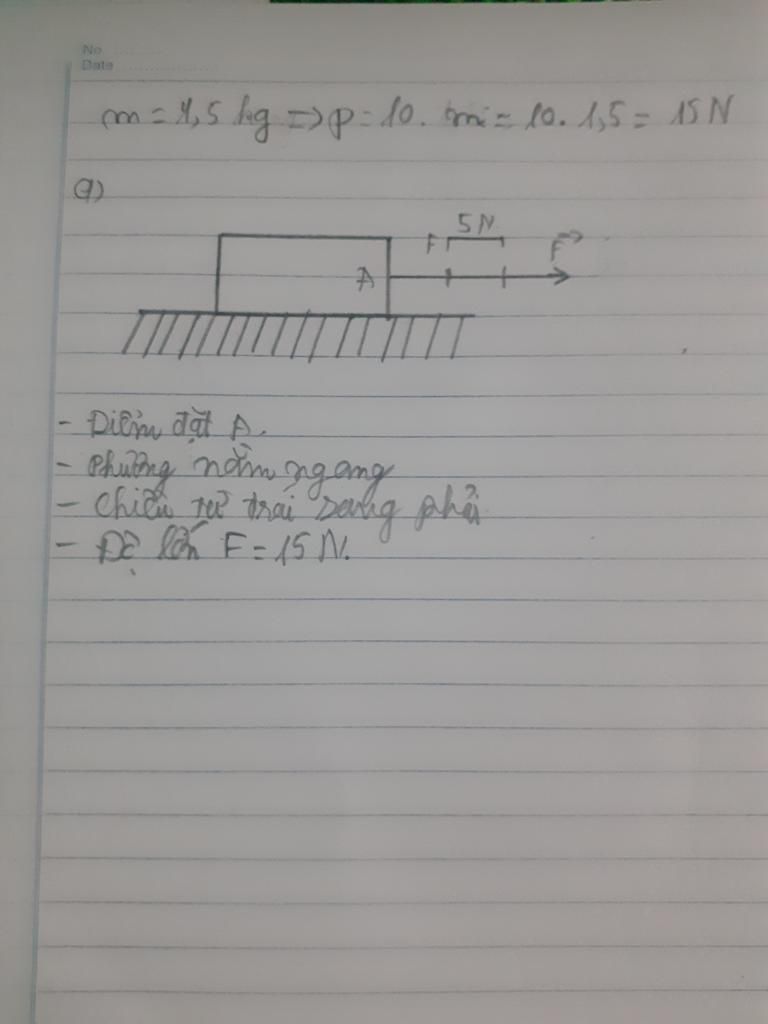 No
Date
m = 1,5 kg => p = 10. m = 10. 1,5 = 15 N
a)
5 N
F
F
A
- Điểm đặt A.
- Phương nằm ngang
- Chiều từ trái sang phải
- Độ lớn F = 15 N.